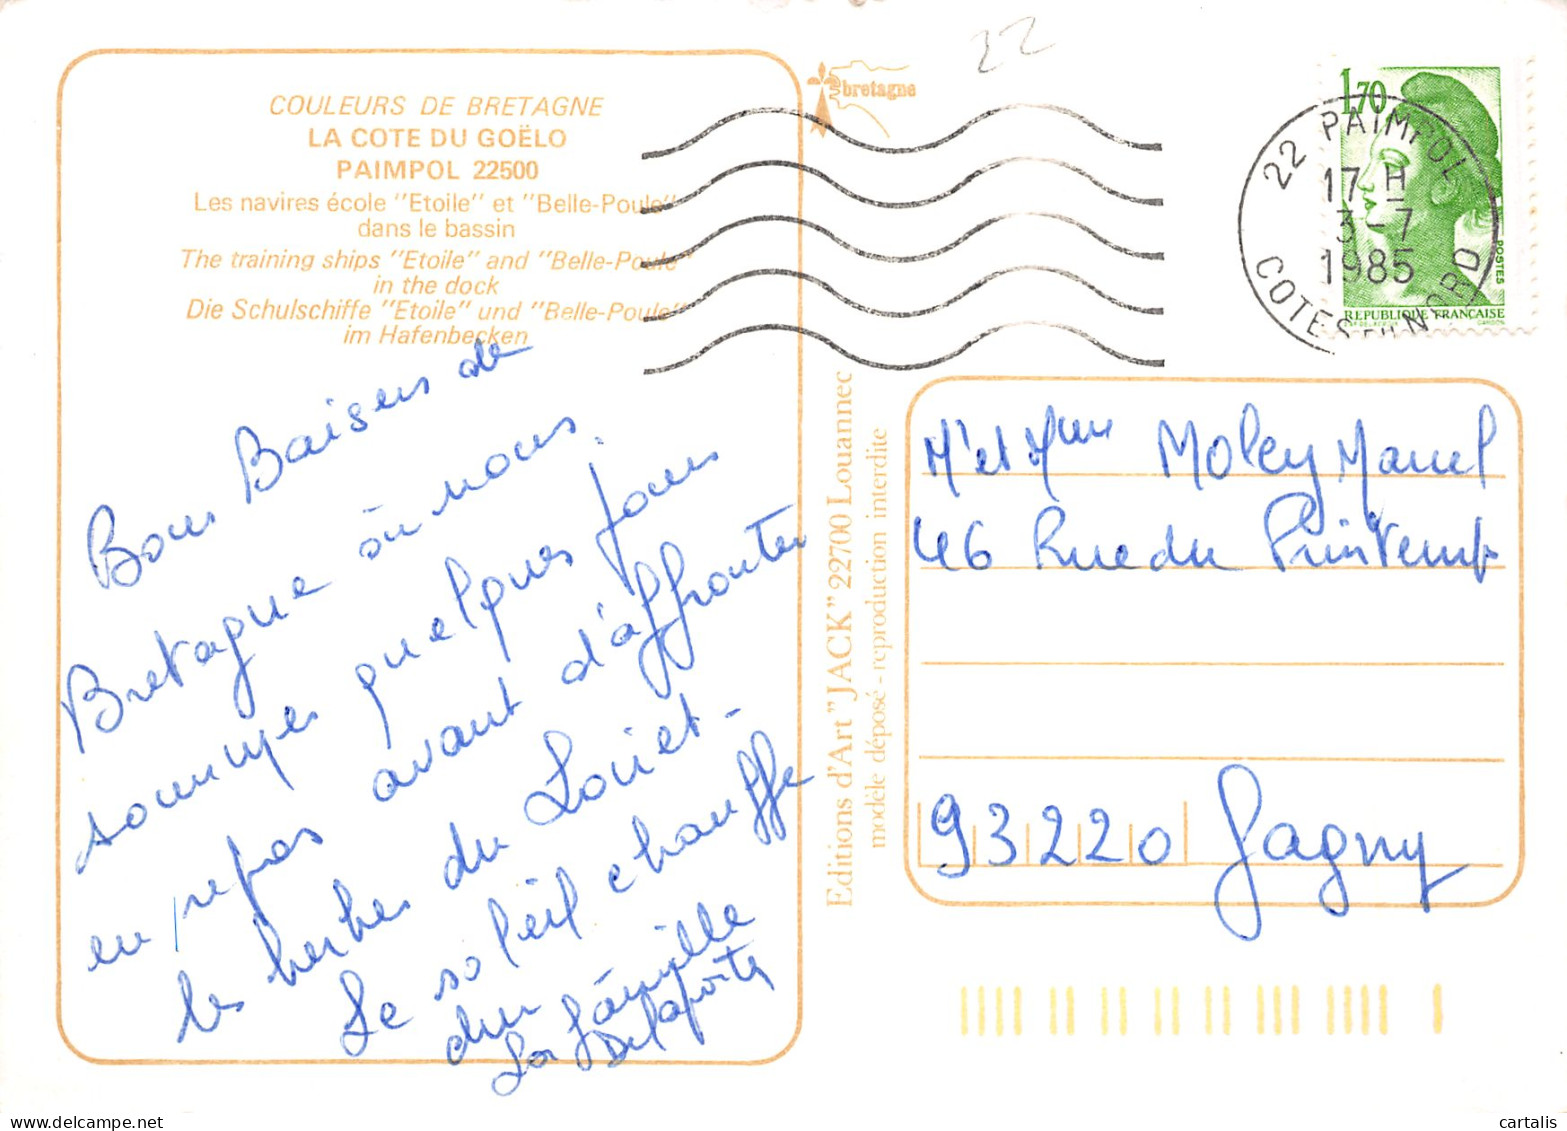 22
COULEURS DE BRETAGNE
LA COTE DU GOËLO
PAIMPOL 22500
Les navires école "Etoile" et "Belle-Poule"
dans le bassin
The training ships "Etoile" and "Belle-Poule"
in the dock
Die Schulschiffe "Etoile" und "Belle-Poule"
im Hafenbecken
bretagne
1,70
POSTES
REPUBLIQUE FRANÇAISE
22 PAIMPOL
17 H
3-7
1985
COTES-DU-NORD
Bons Baisers de
Bretagne où nous
sommes quelques jours
en repos avant d'affronter
les herbes du Loiret -
Le soleil chauffe
dur
La famille
Delaporte
Editions d'Art "JACK" 22700 Louannec
modèle déposé - reproduction interdite
Mr et Mme Moley Marcel
46 Rue du Printemps
93220 Gagny
cartalis